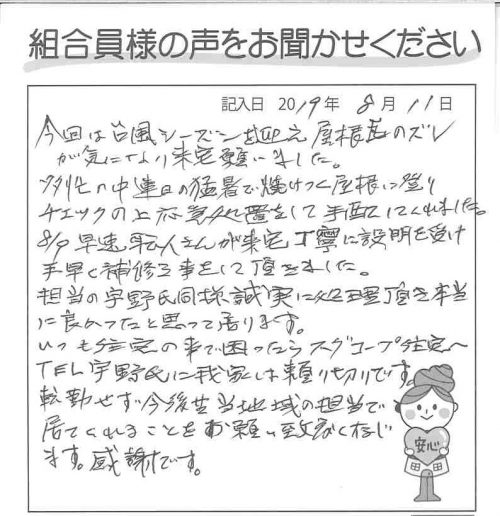 組合員様の声をお聞かせください
記入日 2019年 8月 11日
今回は台風シーズンを迎え屋根瓦のズレ
が気になり来宅願いました。
多忙の中連日の猛暑で焼けつく屋根に登り
チェックの上応急処置をして手配してくれました。
8/9 早速職人さんが来宅丁寧に説明を受け
手早く補修工事をして頂きました。
担当の宇野氏同様誠実に処理頂き本当
に良かったと思って居ります。
いつも住宅の事で困ったらスグコープ住宅へ
TEL宇野氏に我家は頼り切りです
転勤せず今後共当地域の担当で
居てくれることをお願い致したく存じ
ます。感謝です。
安心